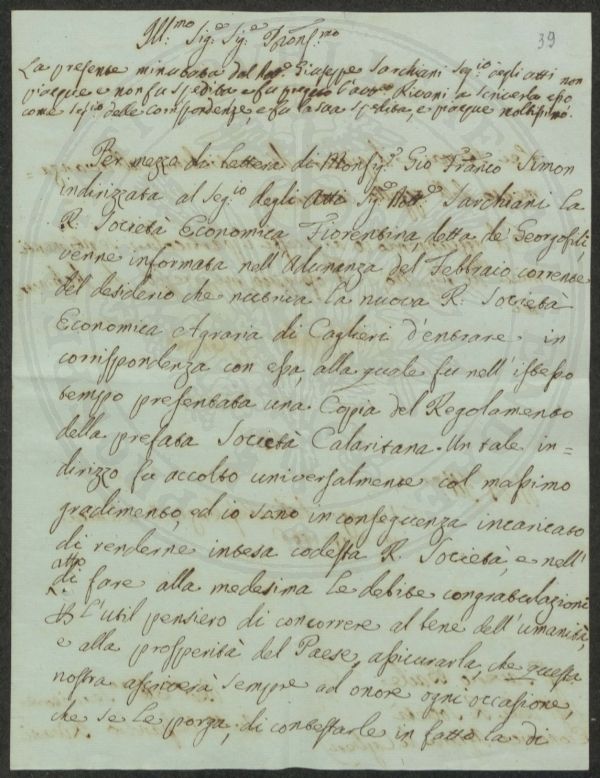 Ill.mo Sig.e Sig.e Pron.mo
39
La presente minutata dal Dott.e Giuseppe Sarchiani Seg.io degli atti non
piacque e non fu spedita e fu pregato l'altro Rivani a scriverla esso
come Seg.io delle corrispondenze, e fu la sua spedita, e piacque moltissimo.
Per mezzo di lettera di Monsig.e Gio Franco Simon
indirizzata al Seg.io degli Atti Sig.e Dott.e Sarchiani la
R. Società Economica Fiorentina detta de' Georgofili,
venne informata nell'Adunanza del Febbraio corrente
del desiderio che nutriva la nuova R. Società
Economica Agraria di Caglieri d'entrare in
corrispondenza con essa, alla quale fu nell'istesso
tempo presentata una Copia del Regolamento
della prefata Società Calaritana. Un tale in=
dirizzo fu accolto universalmente col massimo
gradimento, ed io sono in conseguenza incaricato
di renderne intesa codesta R. Società, e nell'
atto
di fare alla medesima le debite congratulazioni
L'util pensiero di concorrere al bene dell'umanità,
e alla prosperità del Paese, assicurarla, che questa
nostra ascriverà sempre ad onore ogni occasione,
che se le porga, di contestarle in fatto la di